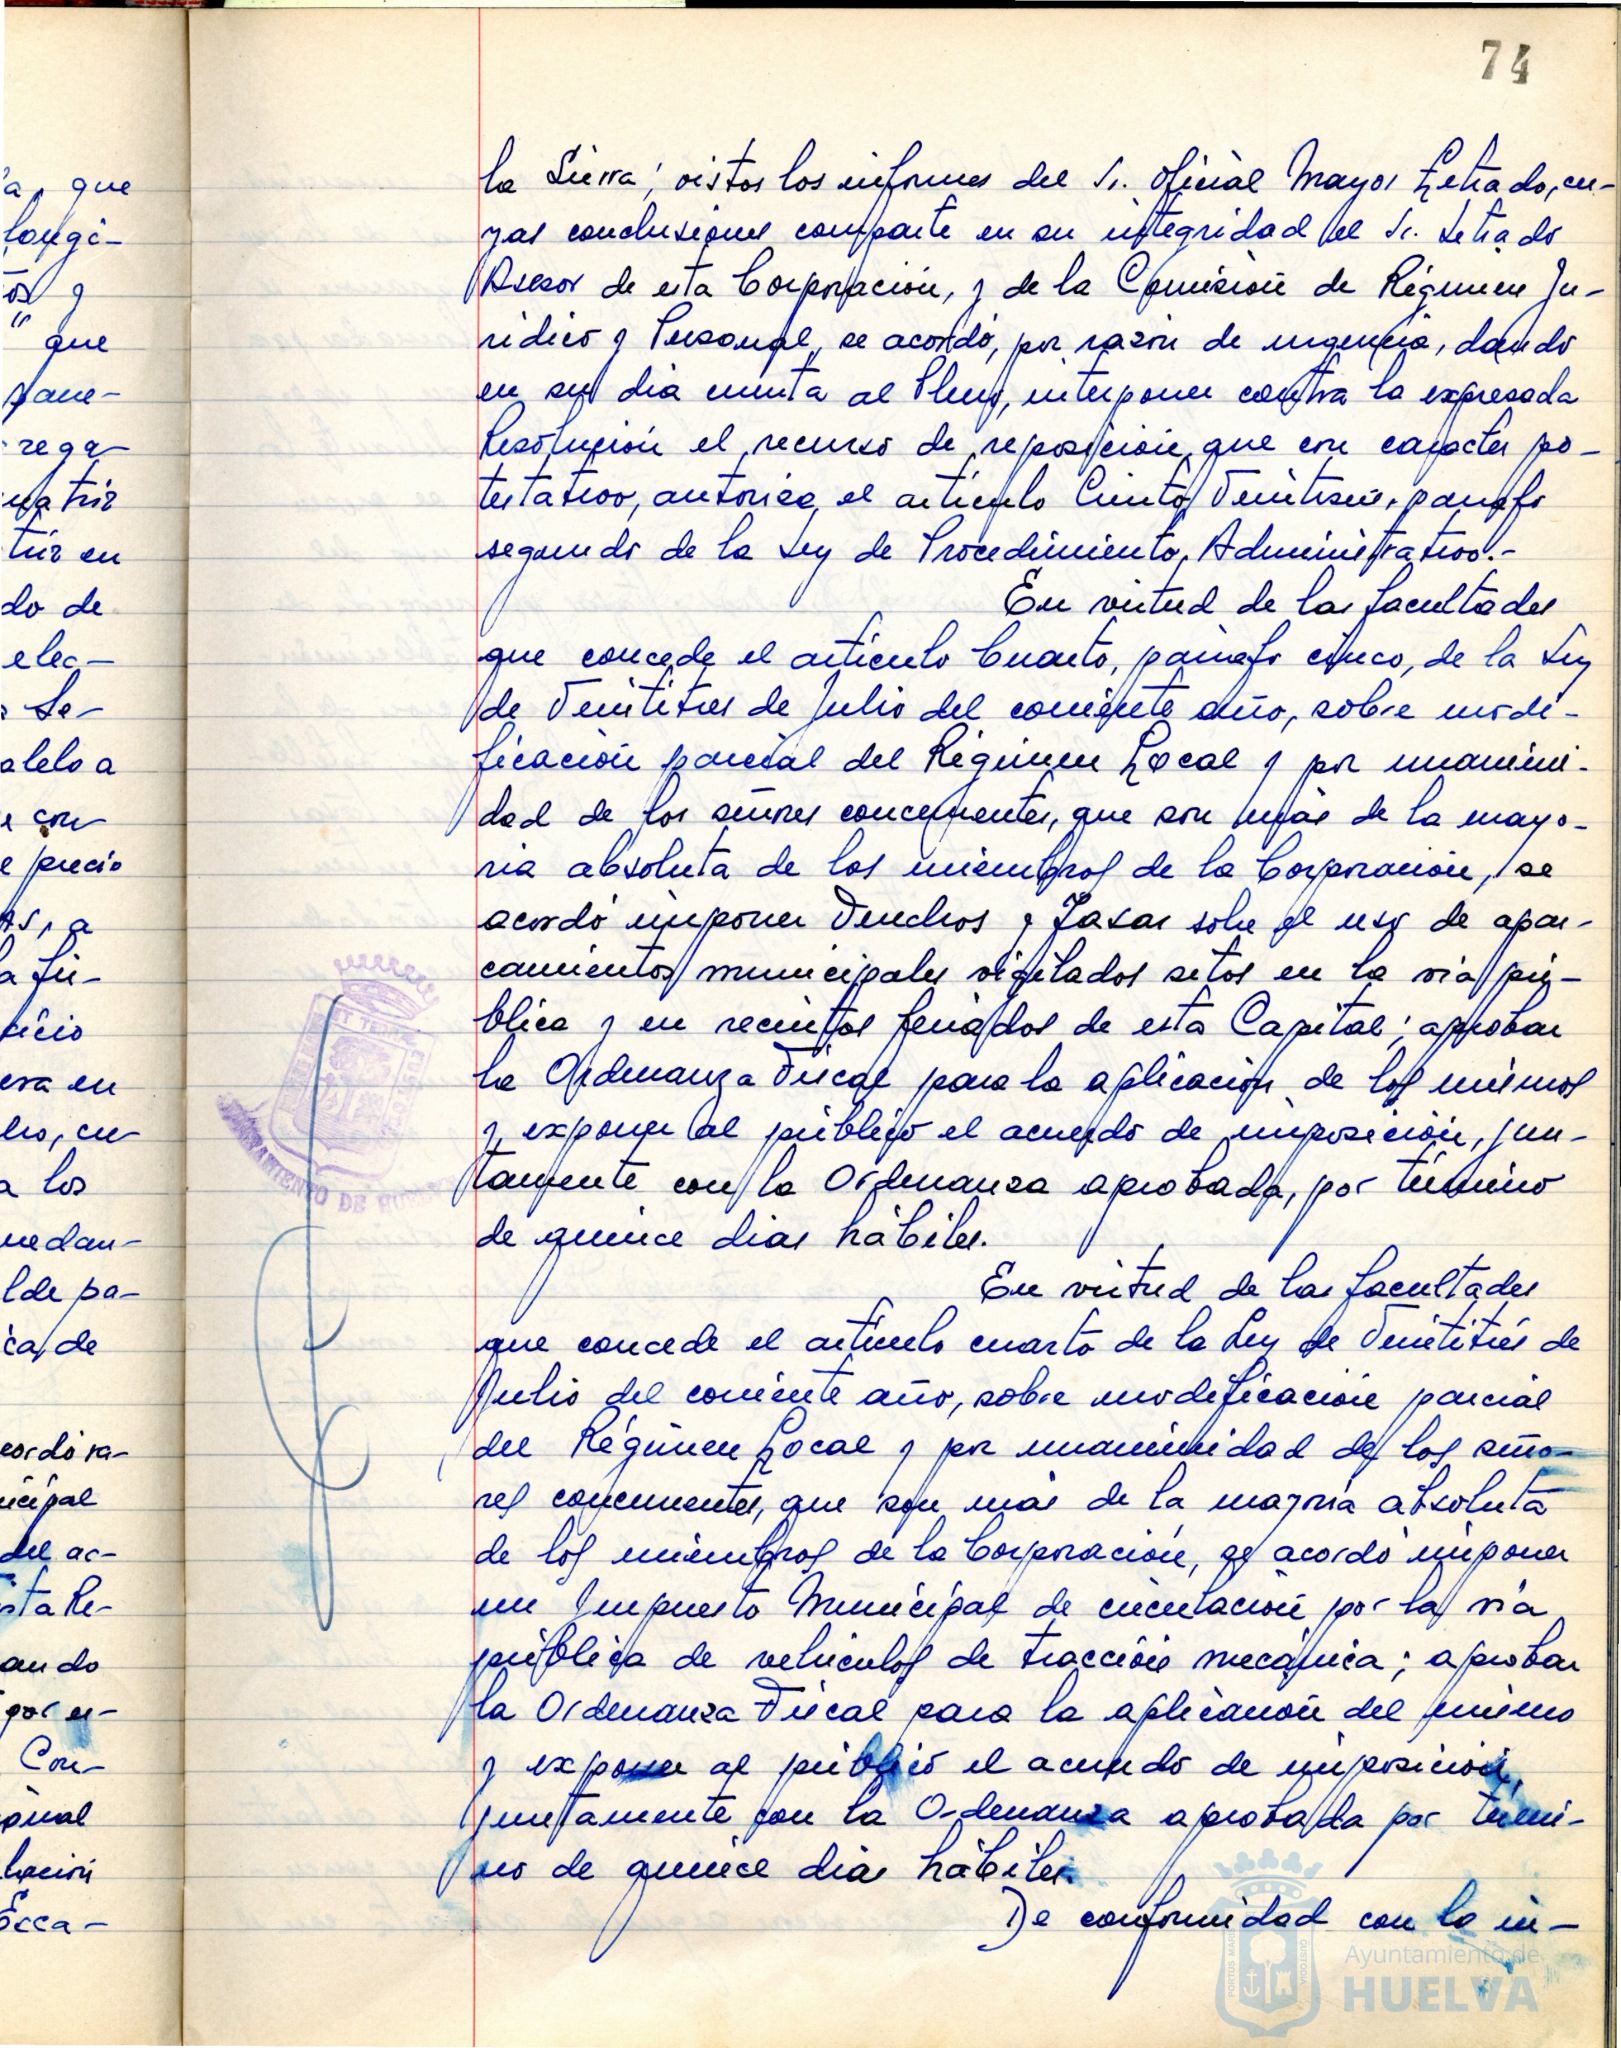 74
la Sierra; vistos los informes del Sr. Oficial Mayor Letrado, cu-
yas conclusiones comparte en su integridad el Sr. Letrado
Asesor de esta Corporación, y de la Comisión de Régimen Ju-
ridico y Personal, se acordó, por razón de urgencia, dando
en su dia cuenta al Pleno, interponer contra la expresada
Resolución el recurso de reposición que con caracter po-
testativo, autoriza el artículo Ciento Veintiseis, parrafo
segundo de la Ley de Procedimiento, Administrativo.-
En virtud de las facultades
que concede el artículo Cuarto, párrafo cinco, de la Ley
de Veintitres de Julio del corriente año, sobre modi-
ficación parcial del Régimen Local y por unanimi-
dad de los señores concurrentes, que son más de la mayo-
ria absoluta de los miembros de la Corporación, se
acordó imponer Derechos y Tasas sobre el uso de apar-
camientos municipales vigilados sitos en la via pú-
blica y en recintos feriados de esta Capital; aprobar
la Ordenanza Fiscal para la aplicación de los mismos
y exponer al público el acuerdo de imposición, jun-
tamente con la Ordenanza aprobada, por término
de quince dias hábiles.
En virtud de las facultades
que concede el artículo cuarto de la Ley de Veintitrés de
Julio del corriente año, sobre modificación parcial
del Régimen Local y por unanimidad de los seño-
res concurrentes, que son más de la mayoría absoluta
de los miembros de la Corporación, se acordó imponer
un Impuesto Municipal de circulación por la vía
pública de vehiculos de tracción mecánica; aprobar
la Ordenanza Fiscal para la aplicación del mismo
y exponer al público el acuerdo de imposición,
juntamente con la Ordenanza aprobada por térmi-
no de quince dias hábiles.
De conformidad con la in-
AYUNTAMIENTO DE HUELVA
PORTUS MARIS
CUSTODIA
Ayuntamiento de
HUELVA